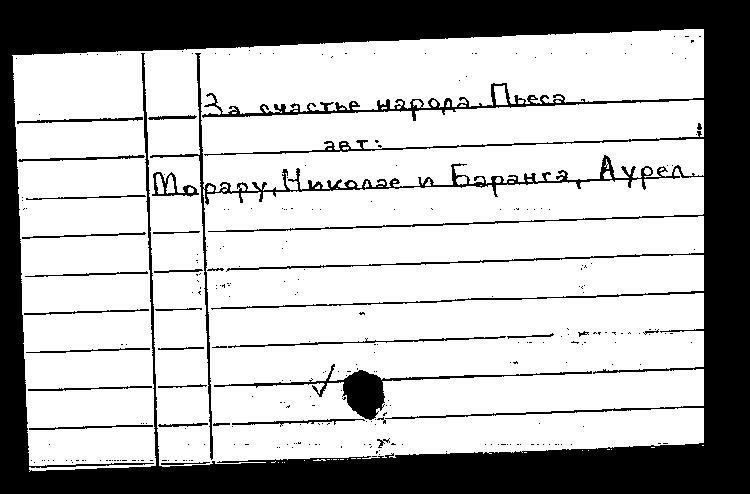 За счастье народа. Пьеса.
авт:
Морару, Николае и Баранга, Аурел.